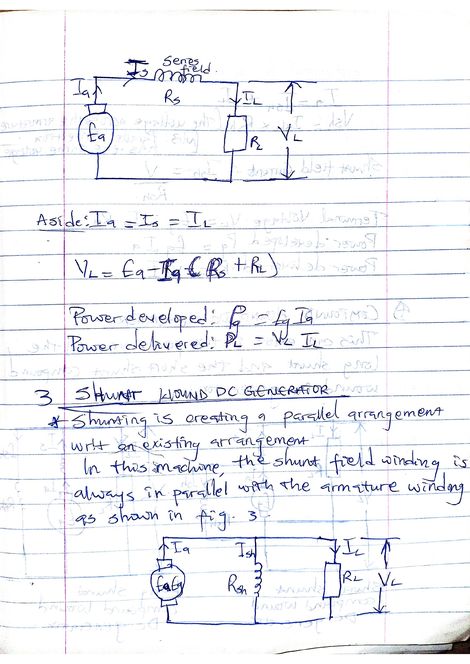 Series
field
Is
Ia
Rs
IL
Ea
RL
VL
Aside: Ia = Is = IL
VL = Ea - Ia (Rs + RL)
Power developed: Pg = Eg Ia
Power delivered: PL = VL IL
3 SHUNT WOUND DC GENERATOR
* Shunting is creating a parallel arrangement
wrt an existing arrangement
In this machine, the shunt field winding is
always in parallel with the armature winding
as shown in fig. 3.
Ia
Ish
IL
Rsh
RL
VL